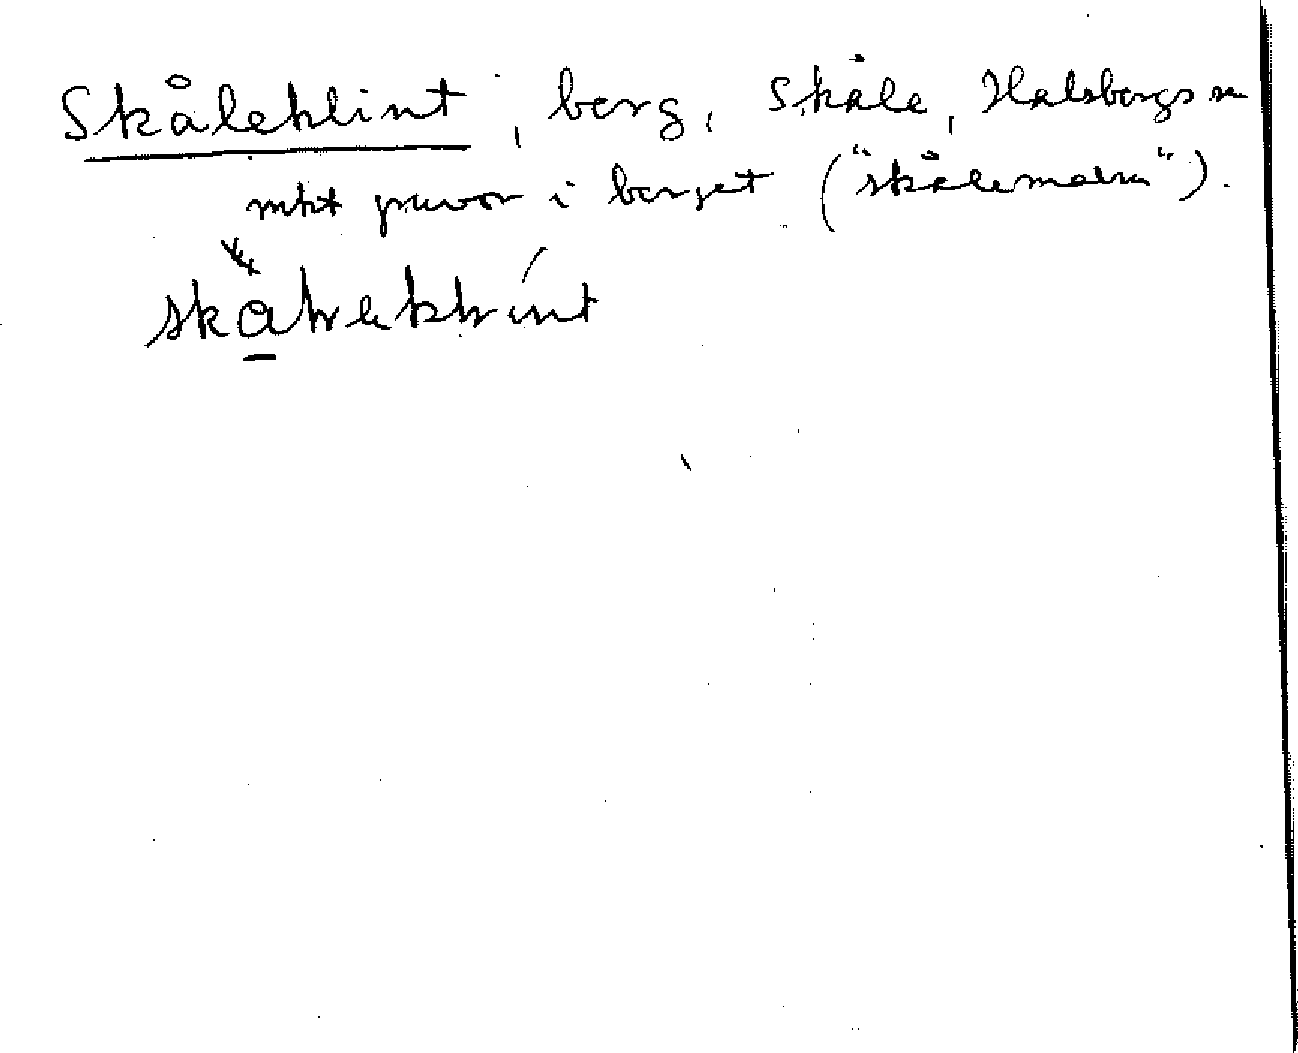 Skåleklint, berg, Skåle, Halsbergs sn
mkt gruvor i berget ("skålemalm").
skåleklint